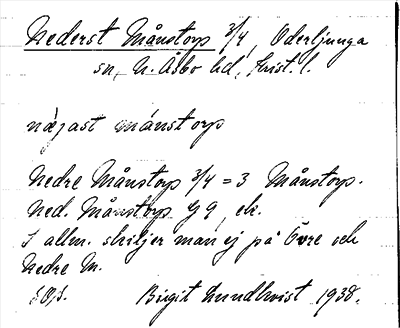 Nederst Månstorp 3/4, Oderljunga
sn, N. Åsbo hd, Krist. l.
nèjast mánstorp
Nedre Månstorp 3/4 = 3 Månstorp.
Ned. Månstorp G9, ek.
I allm. skiljer man ej på Övre och
Nedre M.
Birgit Lundkvist 1938.